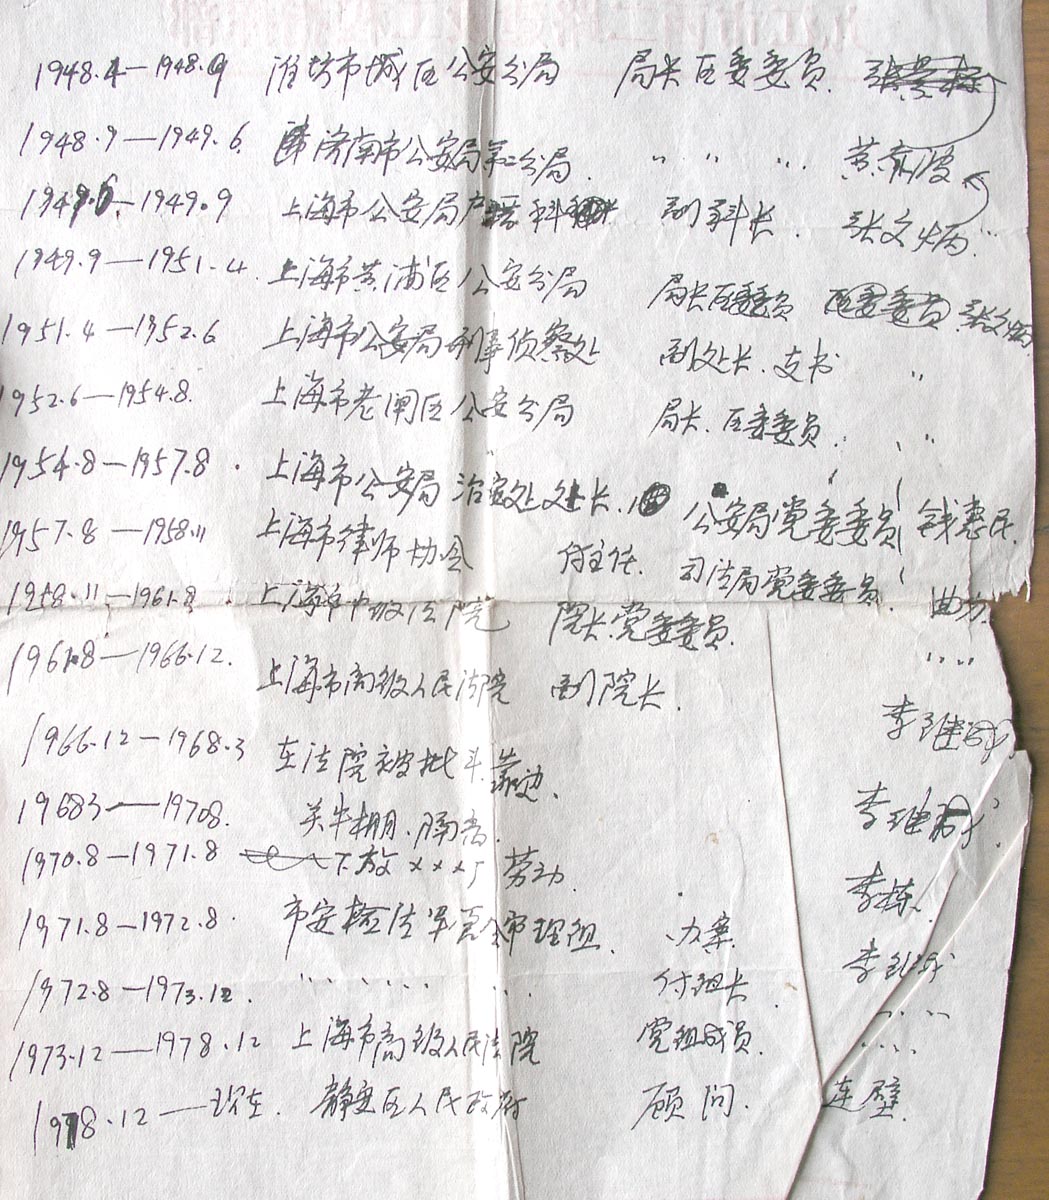 1948.4—1948.9 潍坊市城区公安分局 局长 区委委员
1948.9—1949.6 济南市公安局第二分局 〃 〃 〃 黄
1949.6—1949.9 上海市公安局 科 副科长. 张文炳
1949.9—1951.4 上海市黄浦区公安分局 局长区委委员 区委委员 张文炳
1951.4—1952.6 上海市公安局刑事侦察处 副处长.支书 〃
1952.6—1954.8. 上海市老闸区公安分局 局长.区委委员. 〃
1954.8—1957.8. 上海市公安局治安处处长. 公安局党委委员 钱惠民.
1957.8—1958.11 上海市律师协会 付主任. 司法局党委委员. 曲方.
1958.11—1961.8 上海市中级法院 院长.党委委员. 〃〃
1961.8—1966.12. 上海市高级人民法院 副院长. 李继成
1966.12—1968.3 在法院被批斗靠边. 李继成
1968.3—1970.8. 关牛棚.隔离.
1970.8—1971.8 下放×××厂劳动. 李栋.
1971.8—1972.8. 市公检法军管会审理组. 办案. 李继成
1972.8—1973.12. 〃〃〃〃〃〃 付组长. 〃〃
1973.12—1978.12 上海市高级人民法院 党组成员. 〃〃
1978.12—现在. 静安区人民政府 顾问. 连壁.